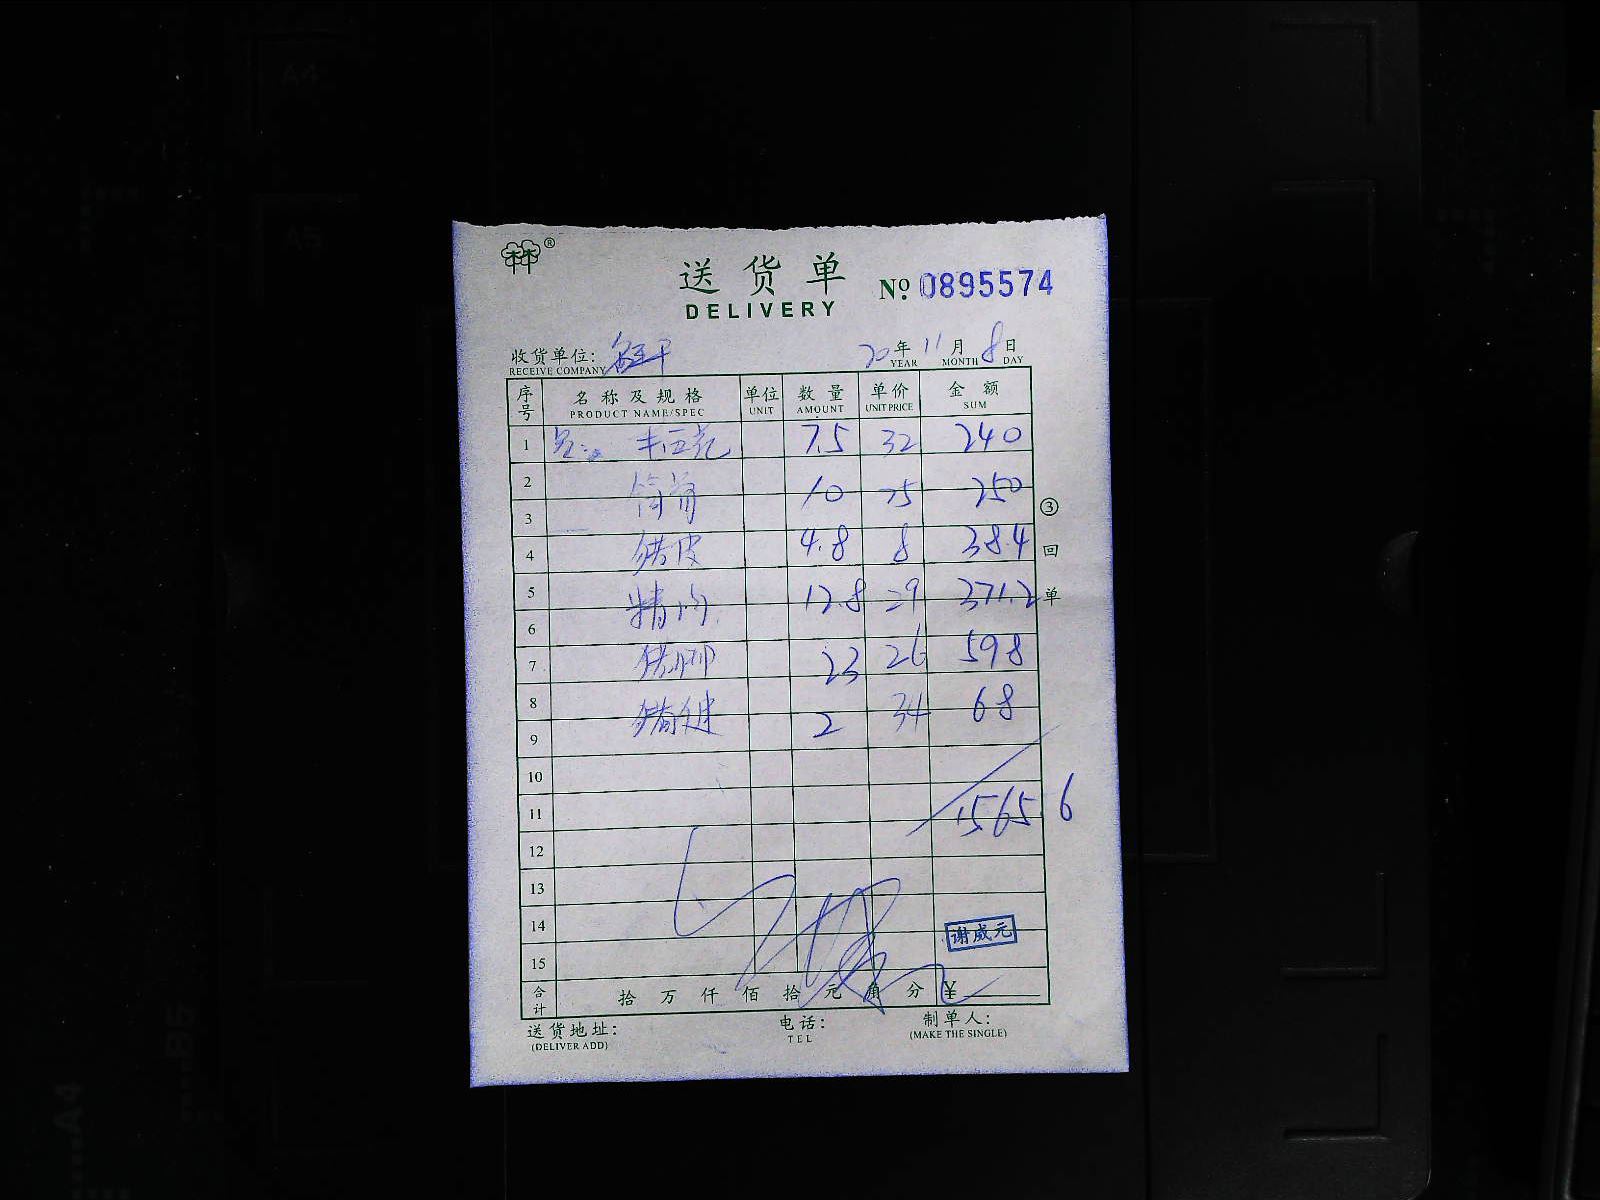 送货单 № 0895574
DELIVERY
收货单位: 20年 11月 8日
RECEIVE COMPANY YEAR MONTH DAY
序号 名称及规格 单位 数量 单价 金额
PRODUCT NAME/SPEC UNIT AMOUNT UNIT PRICE SUM
1 7.5 32 240
2 筒骨 10 25 250
3
4 猪皮 4.8 8 38.4
5 精肉 12.8 29 371.2
6
7 猪脚 23 26 598
8 2 34 68
9
10
11 1565.6
12
13
14 谢威元
15
合计 拾 万 仟 佰 拾 元 角 分 ¥
送货地址: 电话: 制单人:
(DELIVER ADD) TEL (MAKE THE SINGLE)
③
回
单
A4
A5
B5
A4